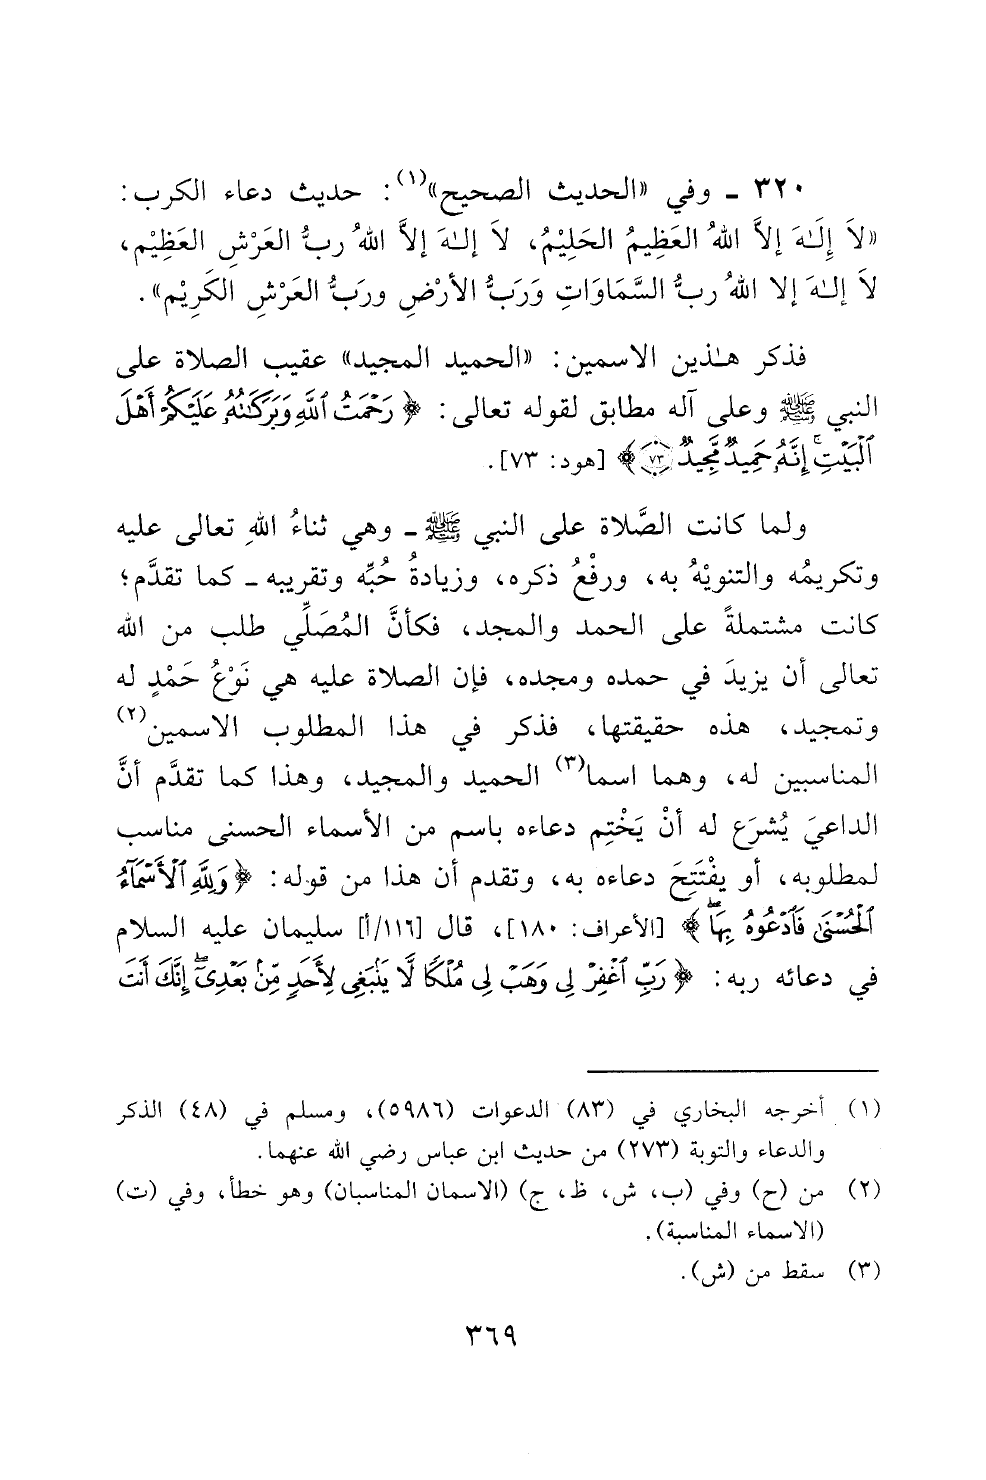 ٣٢٠ ـ وفي «الحديث الصحيح»(١): حديث دعاء الكرب:
«لاَ إِلَـٰهَ إلاَّ اللهُ العَظِيمُ الحَلِيْمُ، لاَ إلـٰهَ إلاَّ اللهُ ربُّ العَرْشِ العَظِيْمِ،
لاَ إلـٰهَ إلا اللهُ ربُّ السَّمَاوَاتِ وَرَبُّ الأرْضِ ورَبُّ العَرْشِ الكَرِيْمِ».
فذكر هـٰذين الاسمين: «الحميد المجيد» عقيب الصلاة على
النبي ﷺ وعلى آله مطابق لقوله تعالى: ﴿رَحْمَتُ ٱللَّهِ وَبَرَكَـٰتُهُۥ عَلَيْكُمْ أَهْلَ
ٱلْبَيْتِۚ إِنَّهُۥ حَمِيدٌ مَّجِيدٌ ٧٣﴾ [هود: ٧٣].
ولما كانت الصَّلاة على النبي ﷺ ـ وهي ثناءُ اللهِ تعالى عليه
وتكريمُه والتنويْهُ به، ورفْعُ ذكره، وزيادةُ حُبِّه وتقريبه ـ كما تقدَّم؛
كانت مشتملةً على الحمد والمجد، فكأنَّ المُصَلِّي طلب من الله
تعالى أن يزيدَ في حمده ومجده، فإن الصلاة عليه هي نَوْعُ حَمْدٍ له
وتمجيد، هذه حقيقتها، فذكر في هذا المطلوب الاسمين(٢)
المناسبين له، وهما اسما(٣) الحميد والمجيد، وهذا كما تقدَّم أنَّ
الداعيَ يُشرَع له أنْ يَخْتِم دعاءه باسم من الأسماء الحسنى مناسب
لمطلوبه، أو يفْتَتِحَ دعاءه به، وتقدم أن هذا من قوله: ﴿وَلِلَّهِ ٱلْأَسْمَآءُ
ٱلْحُسْنَىٰ فَٱدْعُوهُ بِهَاۖ﴾ [الأعراف: ١٨٠]، قال [١١٦/أ] سليمان عليه السلام
في دعائه ربه: ﴿رَبِّ ٱغْفِرْ لِى وَهَبْ لِى مُلْكًا لَّا يَنۢبَغِى لِأَحَدٍ مِّنۢ بَعْدِىٓۖ إِنَّكَ أَنتَ
(١) أخرجه البخاري في (٨٣) الدعوات (٥٩٨٦)، ومسلم في (٤٨) الذكر
والدعاء والتوبة (٢٧٣) من حديث ابن عباس رضي الله عنهما.
(٢) من (ح) وفي (ب، ش، ظ، ج) (الاسمان المناسبان) وهو خطأ، وفي (ت)
(الاسماء المناسبة).
(٣) سقط من (ش).
٣٦٩